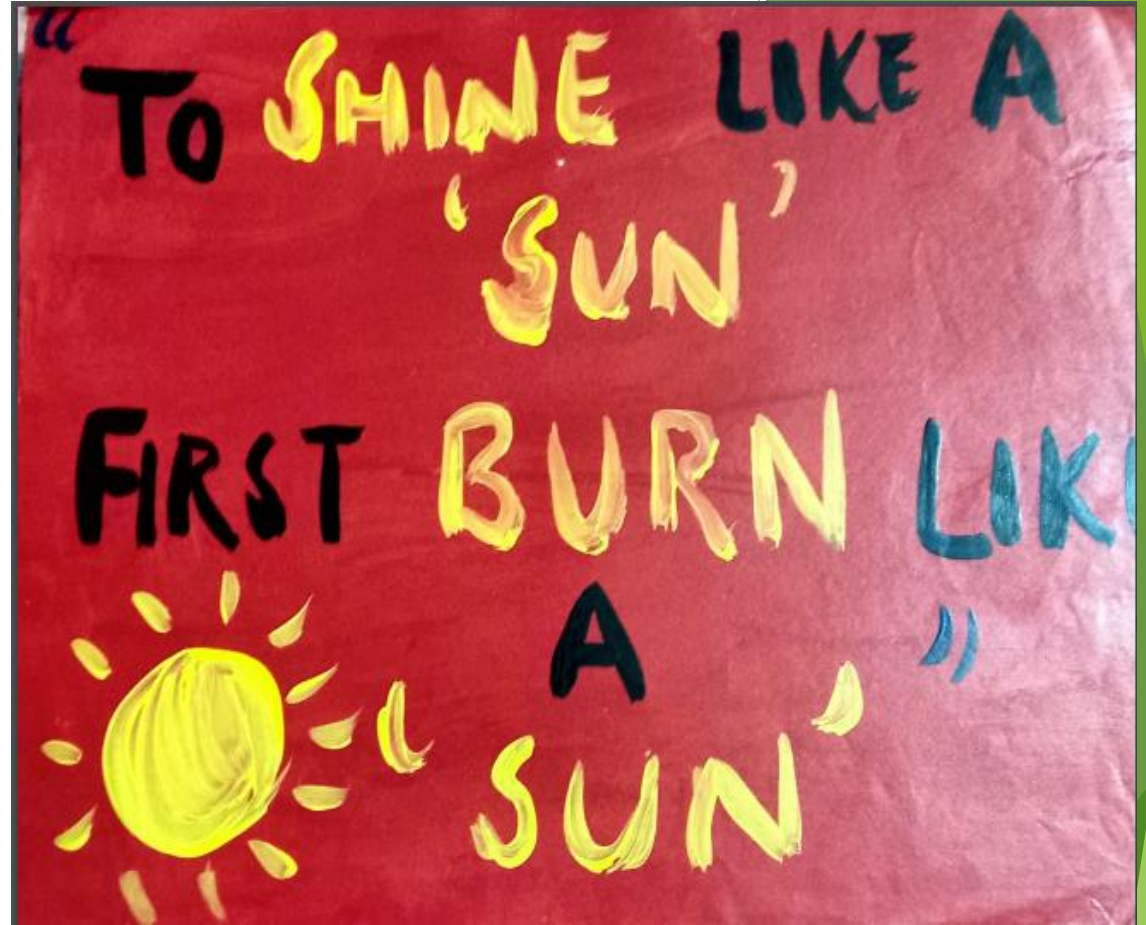 “ TO SHINE LIKE A
‘SUN’
FIRST BURN LIK
A ”
‘SUN’